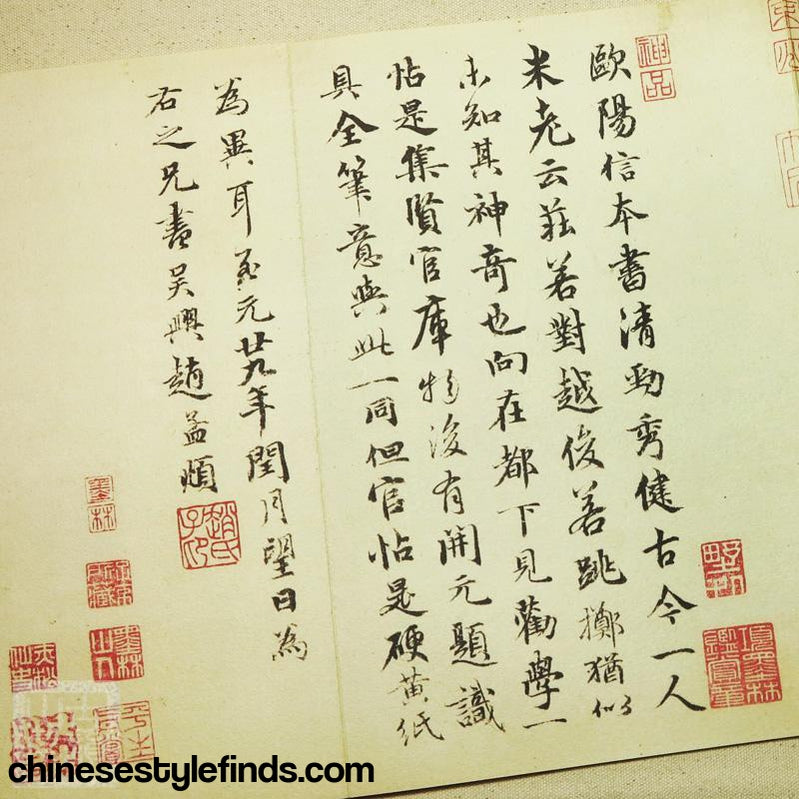 歐陽信本書清勁秀健古今一人
米老云莊若對越俊若跳擲猶似
未知其神奇也向在都下見勸學一
帖是集賢官庫物後有開元題識
具全筆意與此一同但官帖是硬黃紙
為異耳至元廿九年閏月望日為
右之兄書吳興趙孟頫
神品
趙氏子印
墨林
墨林山人
項墨林鑑賞章
chinesestylefinds.com